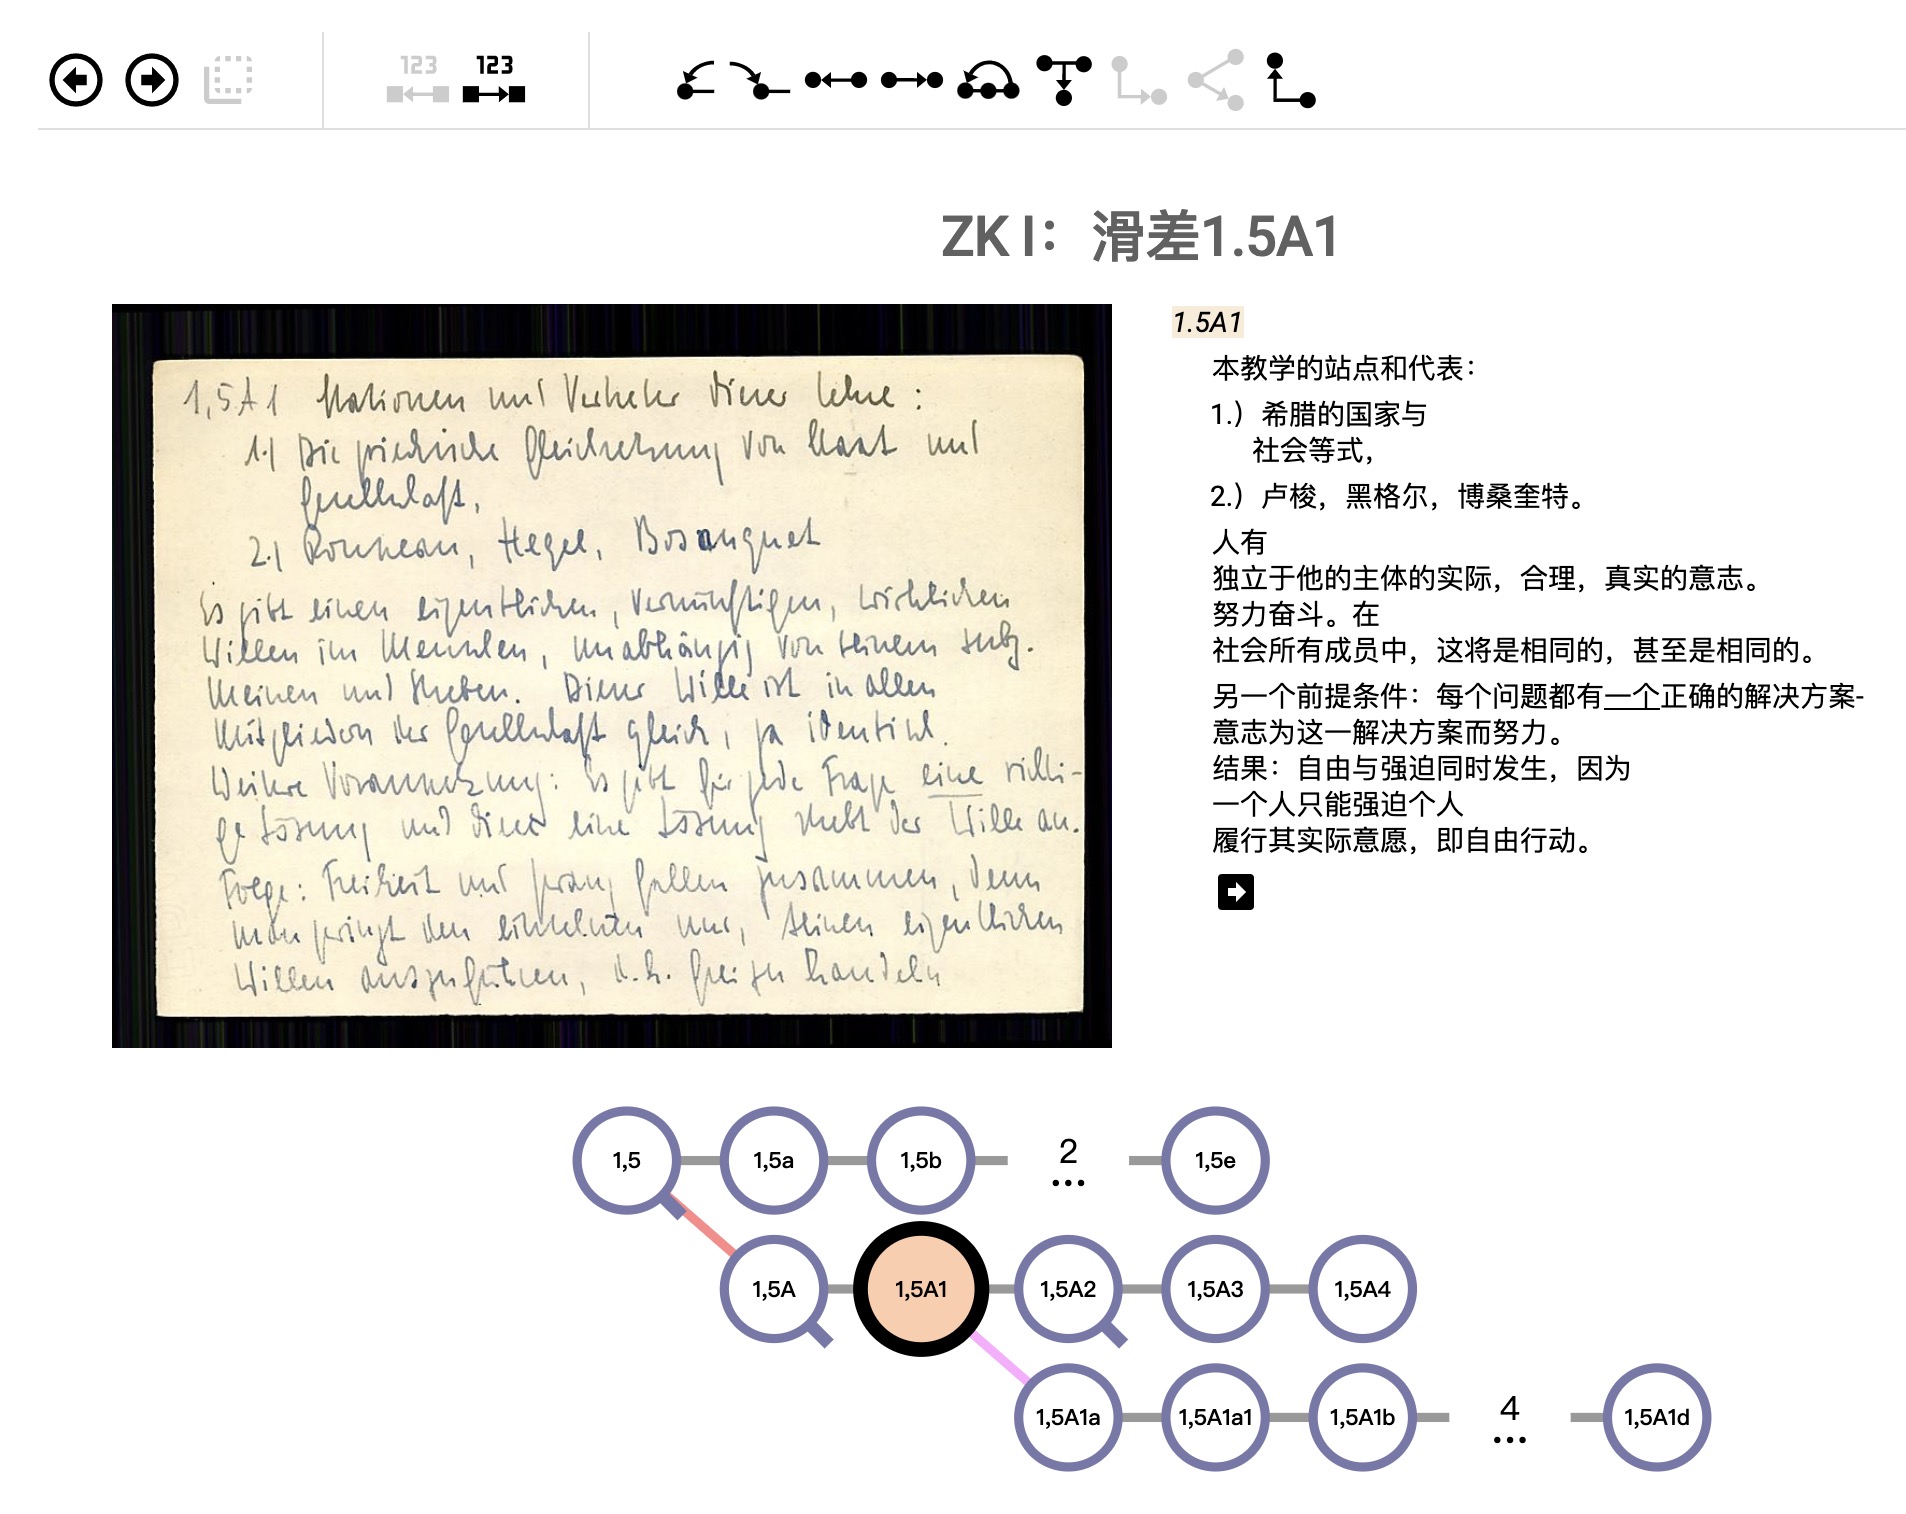 123
123
ZK I：滑差1.5A1
1,5A1 Stationen und Vertreter dieser Lehre :
1.) Die griechische Gleichsetzung von Staat und
Gesellschaft,
2.) Rousseau, Hegel, Bosanquet
Es gibt einen eigentlichen, vernünftigen, wirklichen
Willen im Menschen, unabhängig von seinem subj.
Meinen und Streben. Dieser Wille ist in allen
Mitgliedern der Gesellschaft gleich, ja identisch.
Weitere Voraussetzung: Es gibt für jede Frage eine richti-
ge Lösung und diese eine Lösung strebt der Wille an.
Folge: Freiheit und Zwang fallen zusammen, denn
man zwingt den einzelnen nur, seinen eigentlichen
Willen auszuführen, d.h. frei zu handeln
1.5A1
本教学的站点和代表：
1.）希腊的国家与
社会等式，
2.）卢梭，黑格尔，博桑奎特。
人有
独立于他的主体的实际，合理，真实的意志。
努力奋斗。在
社会所有成员中，这将是相同的，甚至是相同的。
另一个前提条件：每个问题都有一个正确的解决方案-
意志为这一解决方案而努力。
结果：自由与强迫同时发生，因为
一个人只能强迫个人
履行其实际意愿，即自由行动。
1,5
1,5a
1,5b
2
...
1,5e
1,5A
1,5A1
1,5A2
1,5A3
1,5A4
1,5A1a
1,5A1a1
1,5A1b
4
...
1,5A1d